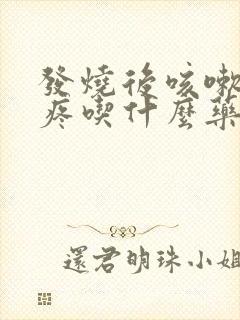 發燒後咳嗽
疼喫什麼藥
還君明珠小姐